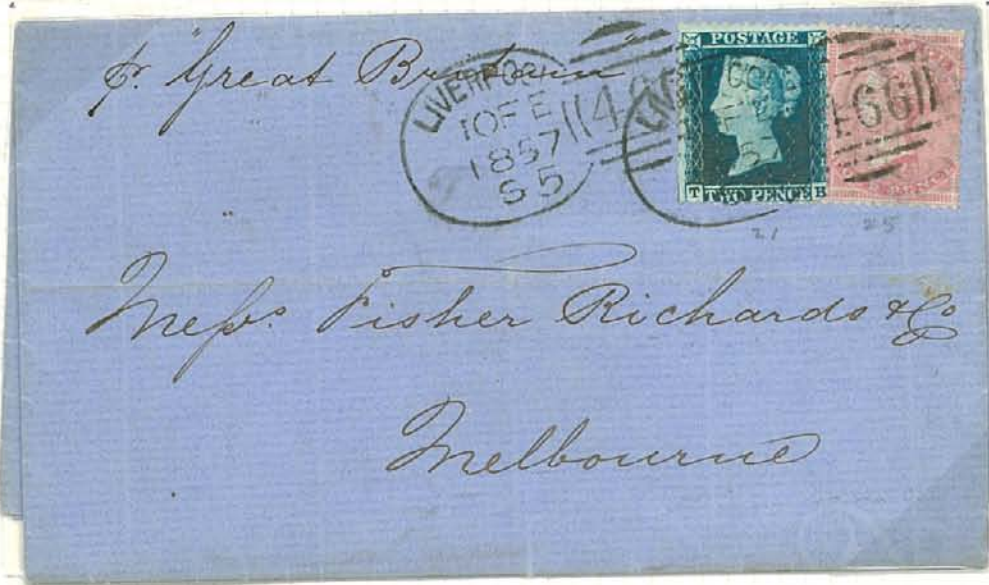 pr "Great Britain"
LIVERPOOL
10 FE
1857
S 5
466
POSTAGE
T TWO PENCE B
21
25
Messrs Fisher Richards & Co
Melbourne